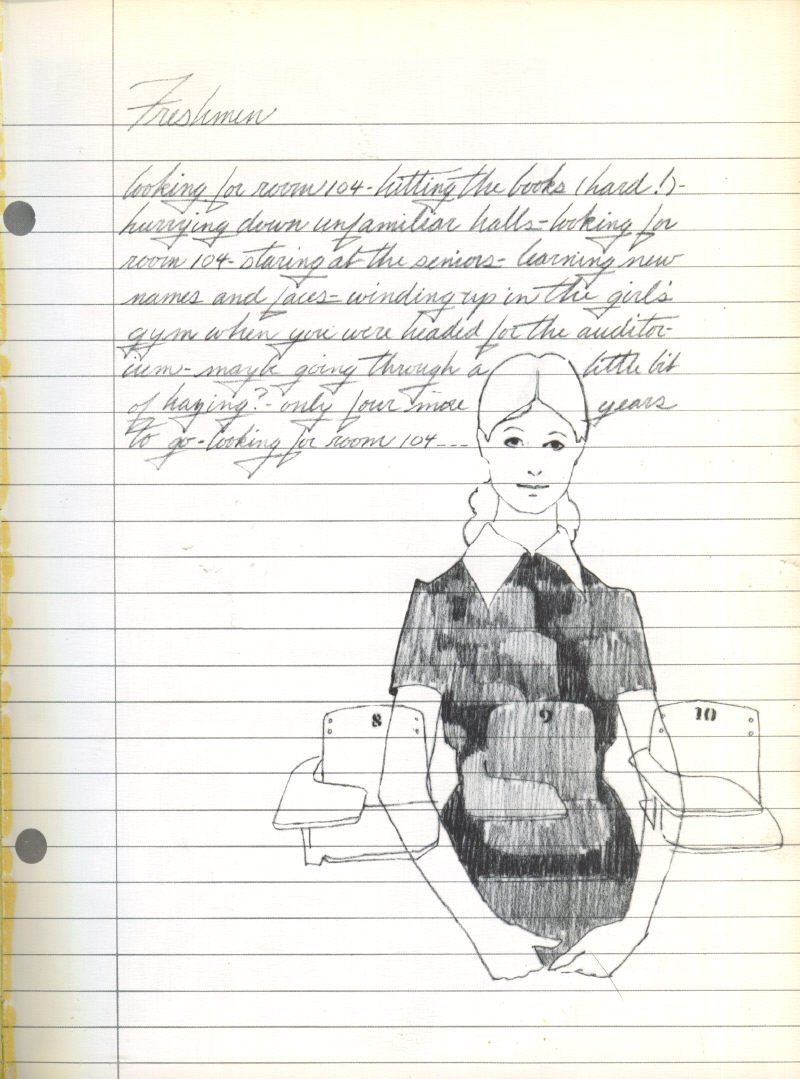 Freshmen
looking for room 104- hitting the books (hard!)-
hurrying down unfamiliar halls- looking for
room 104- staring at the seniors- learning new
names and faces- winding up in the girl's
gym when you were headed for the auditor-
ium- maybe going through a little bit
of hazing?- only four more years
to go- looking for room 104---
8 9 10